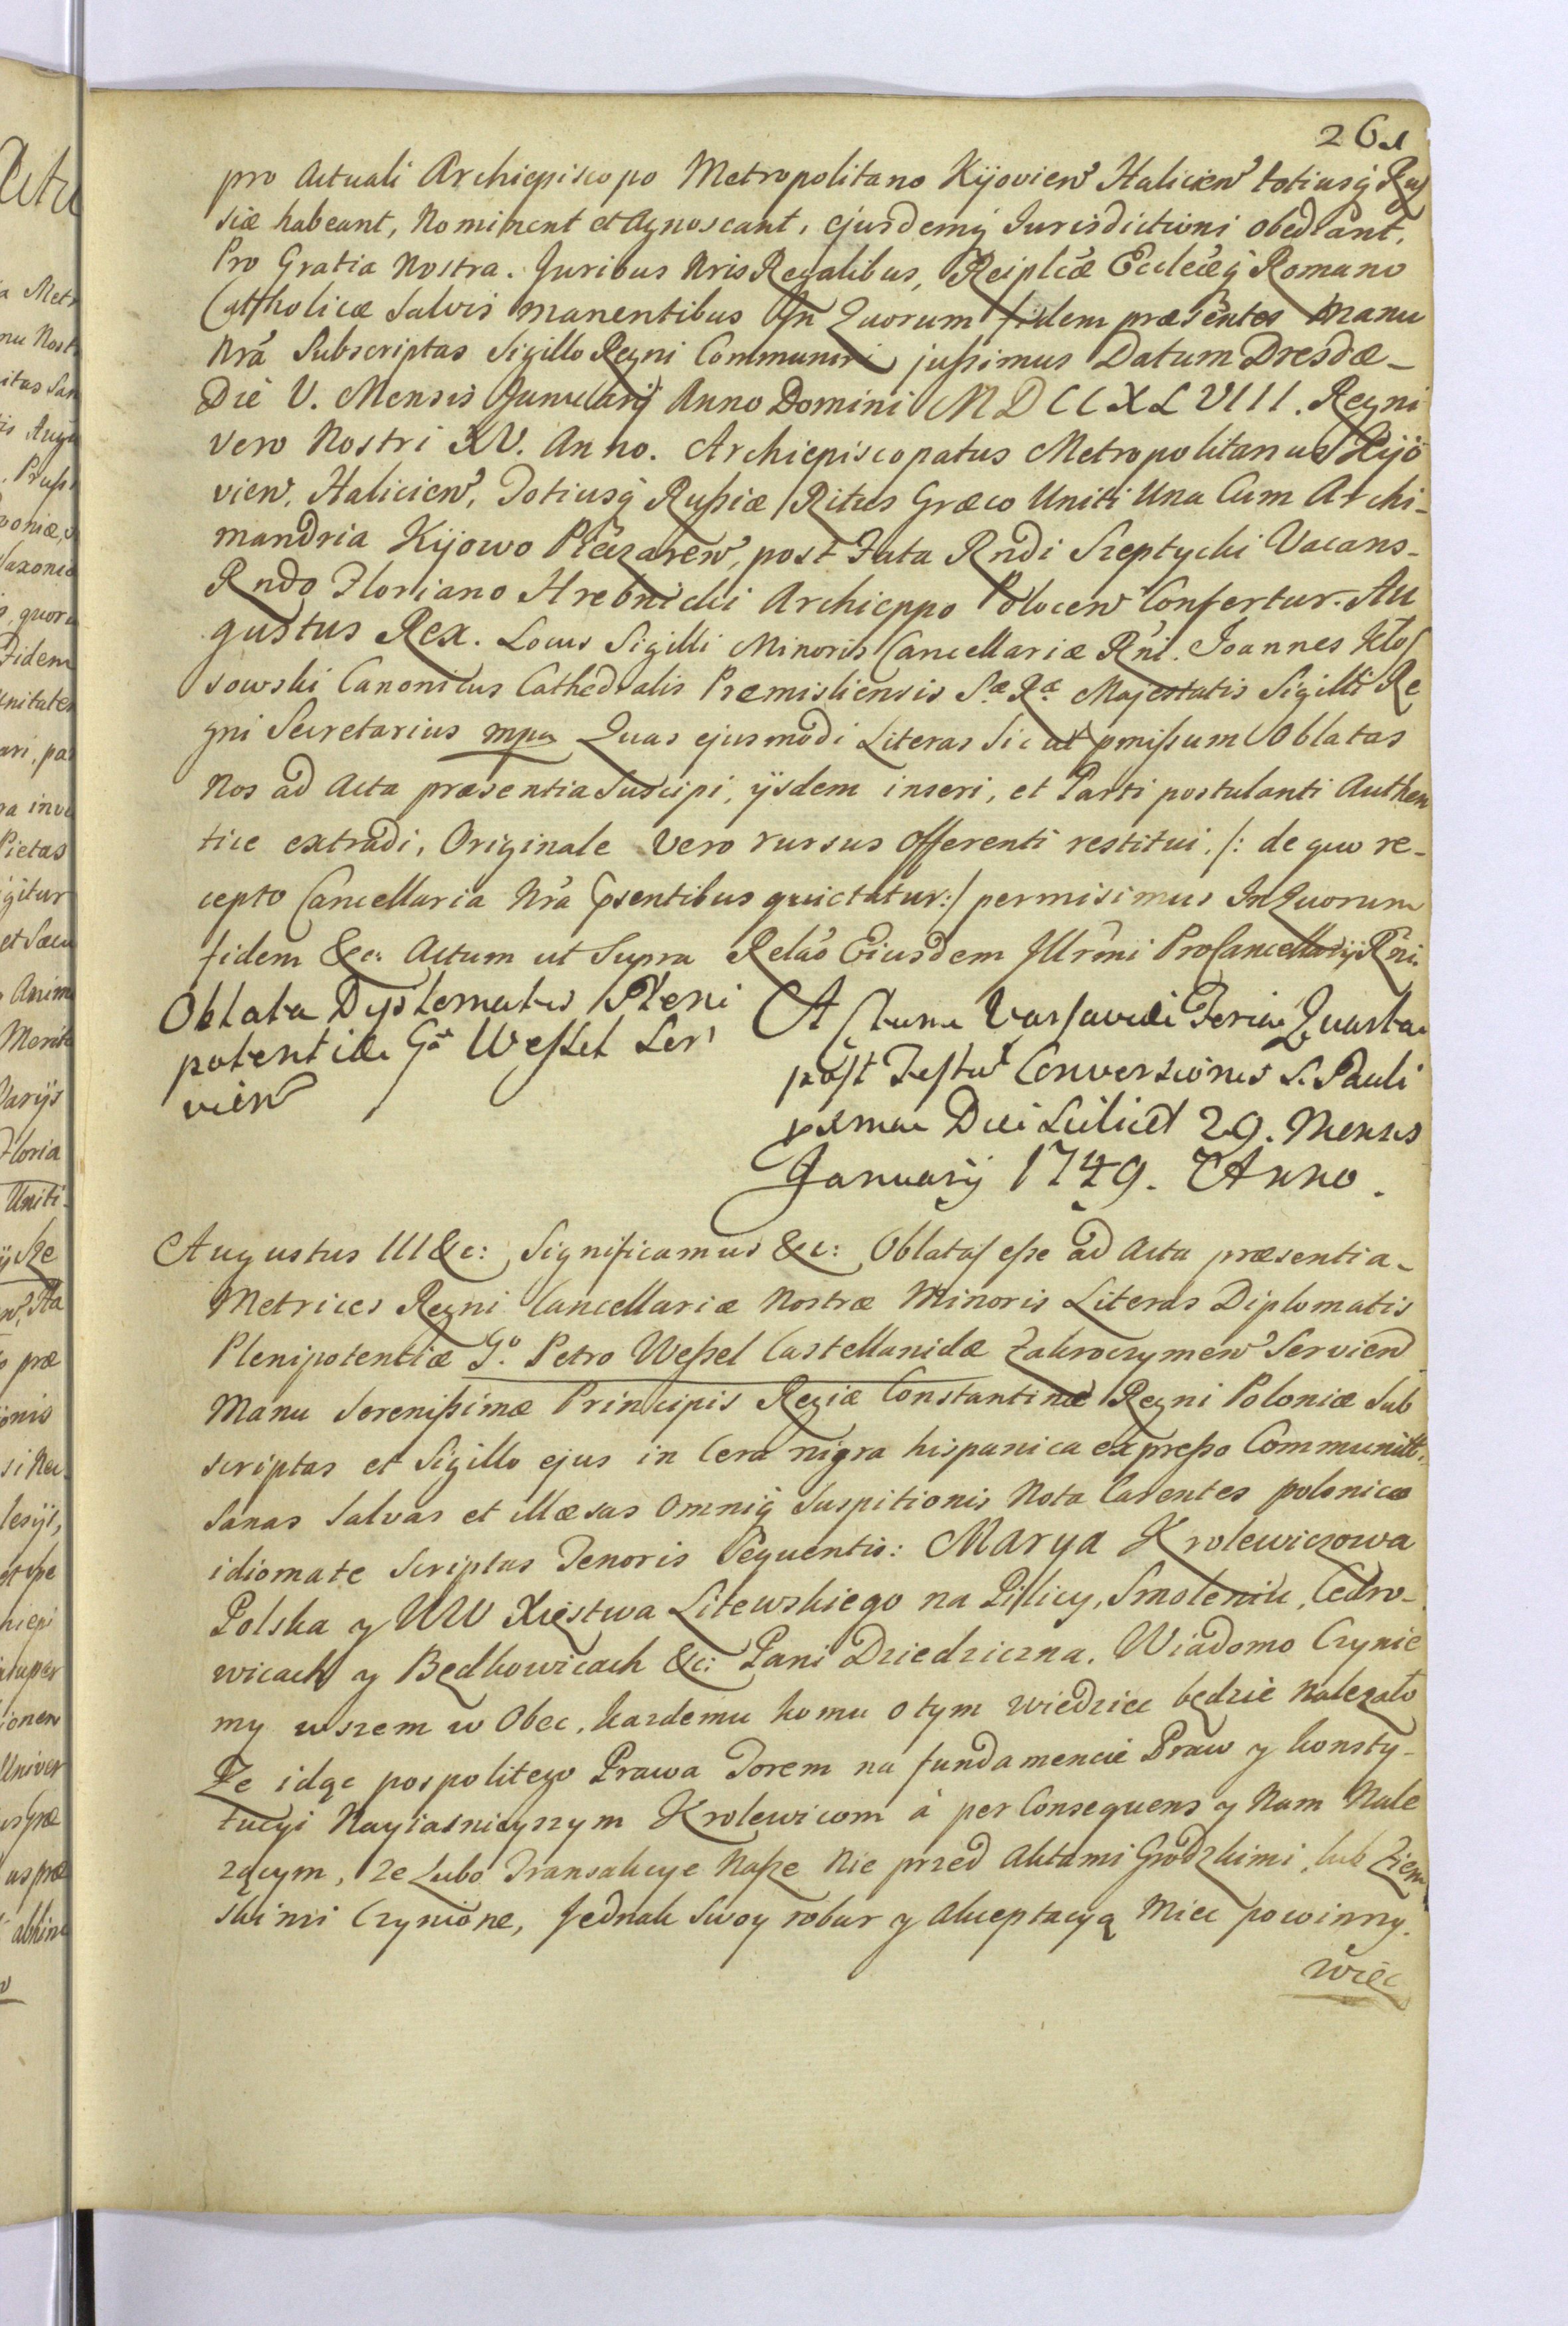 261
pro Actuali Archiepiscopo Metropolitano Kijovien Halicien totiusq Rus
siæ habeant, Nominent et Agnoscant, ejusdemq Jurisdictioni obediant.
Pro Gratia Nostra. Juribus Nris Regalibus, Reiplicæ Ecclæq Romano
Cattholicæ Salvis manentibus In Quorum fidem præsentes Manu
Nrâ Subscriptas Sigillo Regni Communiri jussimus Datum Dresdæ
Die V. Mensis Januarij Anno Domini MDCCXLVIII. Regni
vero Nostri XV. Anno. Archiepiscopatus Metropolitanus Kijo
vien, Halicien, Totiusq Russiæ Ritus Græco Uniti Una Cum Archi-
mandria Kijowo Pieczaren, post Fata Rndi Szeptycki Vacans
Rndo Floriano Hrebnicki Archieppo Polocen Confertur. Au
gustus Rex. Locus Sigilli Minoris Cancellariæ Rni. Joannes Kłos
sowski Canonicus Cathedralis Præmisliensis Sæ Ræ Majestatis Sigilli Re
gni Secretarius mpa Quas ejusmodi Literas Sic ut pmissum Oblatas
Nos ad Acta præsentia Suscipi, ijsdem inseri, et Parti postulanti Authen
tice extradi, Originale Vero rursus Offerenti restitui /: de quo re-
cepto Cancellaria Nra psentibus quictatur :/ permisimus In Quorum
fidem &c: Actum ut Supra Relâo Eiusdem Illrmi ProCancellarij Rni.
Oblata Dyplomatis Pleni
potentiæ Go Wessel Ser
vien
Actum Varsaviæ Feria Quarta
post Festu Conversionis S. Pauli
pxma Die Scilicet 29. Mensis
Januarij 1749. Anno.
Augustus III &c: Significamus &c: Oblatas esse ad Acta præsentia
Metrices Regni Cancellariæ Nostræ Minoris Literas Diplomatis
Plenipotentiæ Go. Petro Wessel Castellanidæ Zakroczymen Servien
Manu Serenissimæ Principis Regiæ Constantinæ Regni Poloniæ Sub
scriptas et Sigillo ejus in Cera nigra hispanica expresso Communitt:
Sanas Salvas et illæsas Omniq Suspitionis Nota Carentes polonico
idiomate Scriptas Tenoris Sequentis: Marya Krolewiczowa
Polska y WW Xięstwa Litewskiego na Pilicy, Smoleniu, Cedro-
wicach y Będkowicach &c: Pani Dziedziczna. Wiadomo Czynie
my wszem w Obec, kazdemu komu o tym wiedziec będzie nalezało
Ze idąc pospolitego Prawa Torem na fundamencie Praw y konsty-
tucyi Nayiasnieyszym Krolewicom à per Consequens y Nam Nale
zącym, ze Lubo Transakcye Nasze Nie przed Aktami Grodzkimi, lub Ziem
skimi Czynione, Jednak Swoy robur y Akceptacyą Miec powinny.
więc